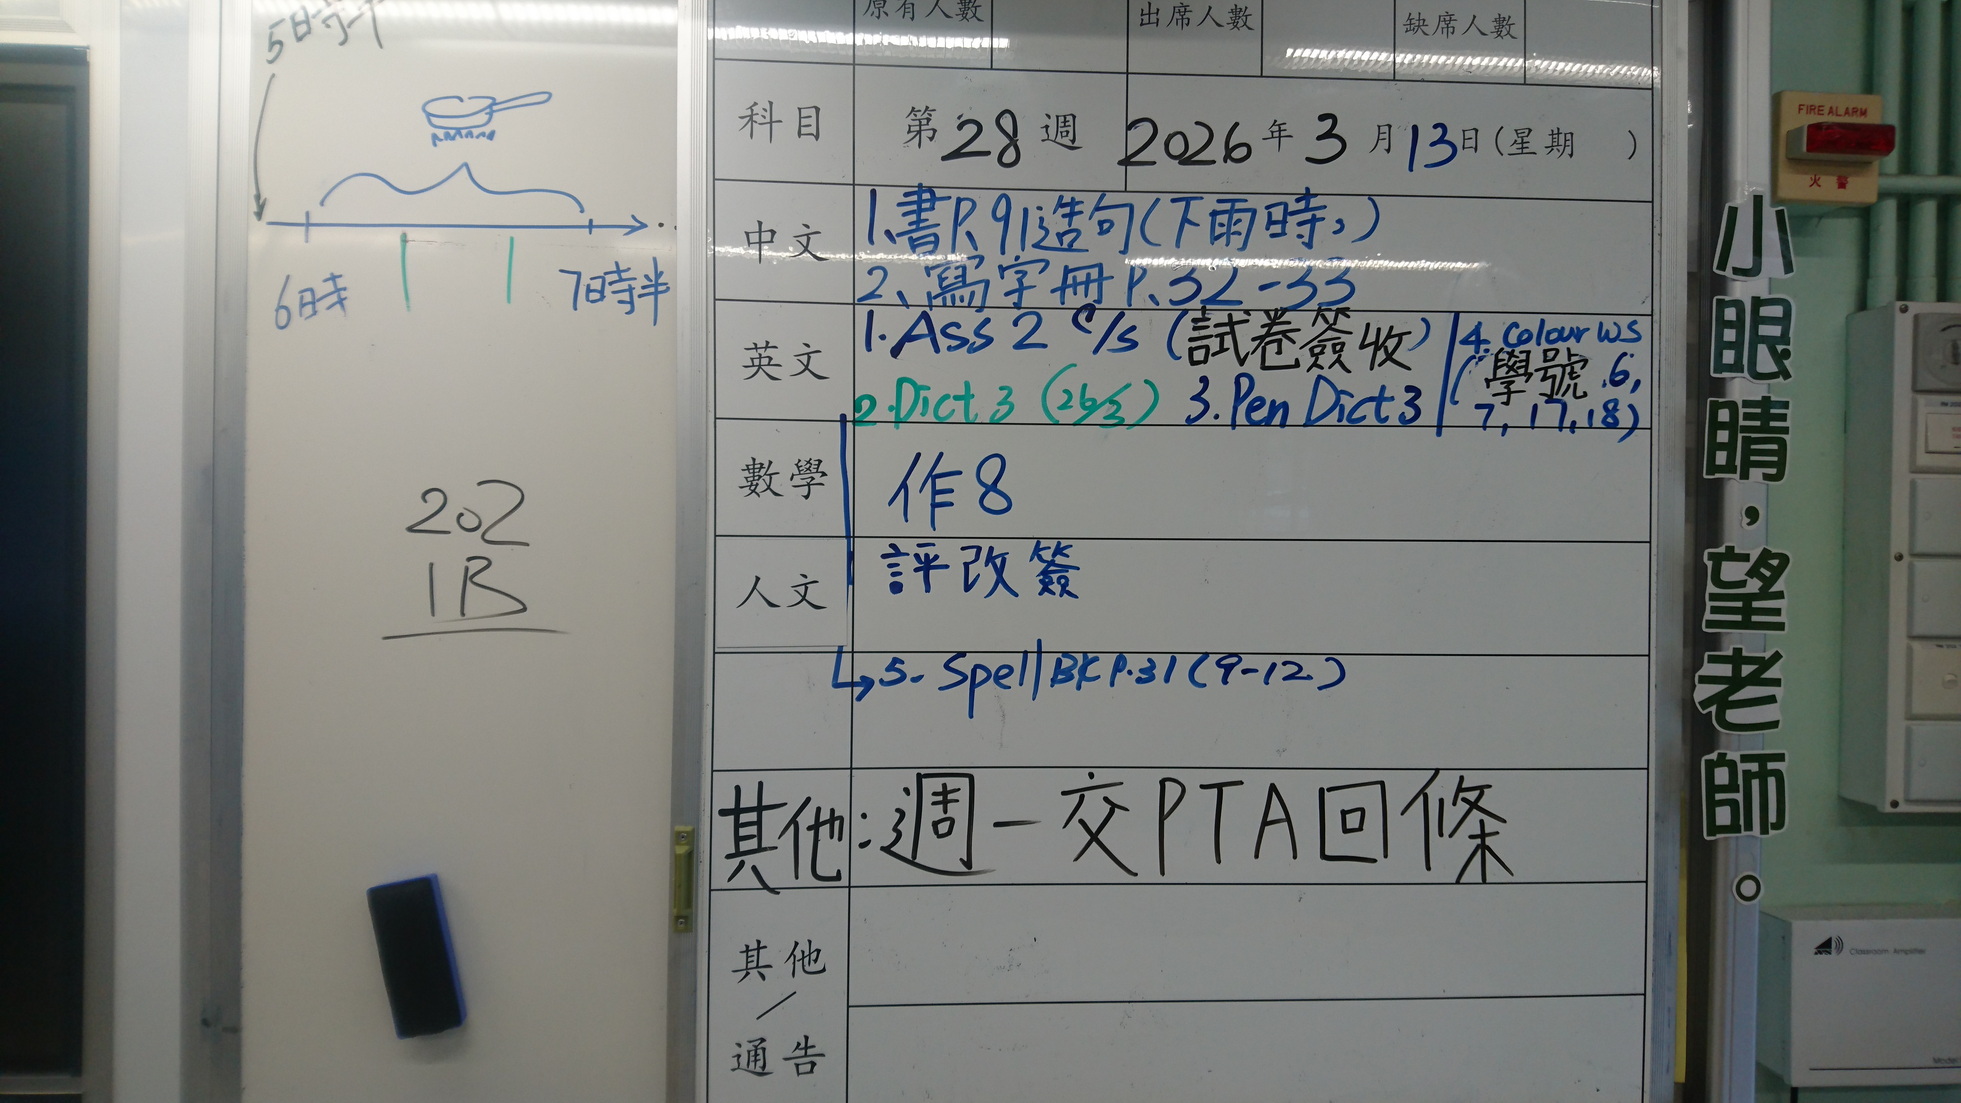 5時半
6時
7時半
202
1B
原有人數 出席人數 缺席人數
科目 第28週 2026年3月13日(星期 )
中文 1、書P.91造句(下雨時,)
2、寫字冊P.32-33
英文 1.Ass 2 c/s (試卷簽收)
2.Dict 3 (26/3) 3.Pen Dict 3
4. Colour WS
(學號 6,
7, 17, 18)
數學 作8
人文 評改簽
5. Spell BK P.31 (9-12)
其他:週一交PTA回條
其他
/
通告
小眼睛,望老師。
FIRE ALARM
火警
Classroom Amplifier
Model